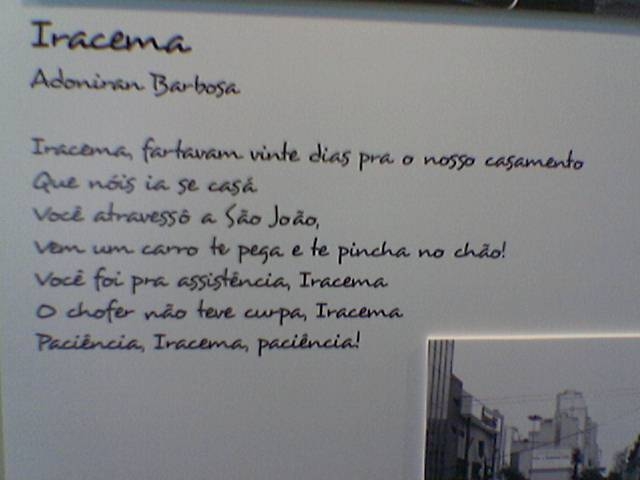 Iracema
Adoniran Barbosa
Iracema, fartavam vinte dias pra o nosso casamento
Que nóis ia se casá
Você atravessô a São João,
Vem um carro te pega e te pincha no chão!
Você foi pra assistência, Iracema
O chofer não teve curpa, Iracema
Paciência, Iracema, paciência!